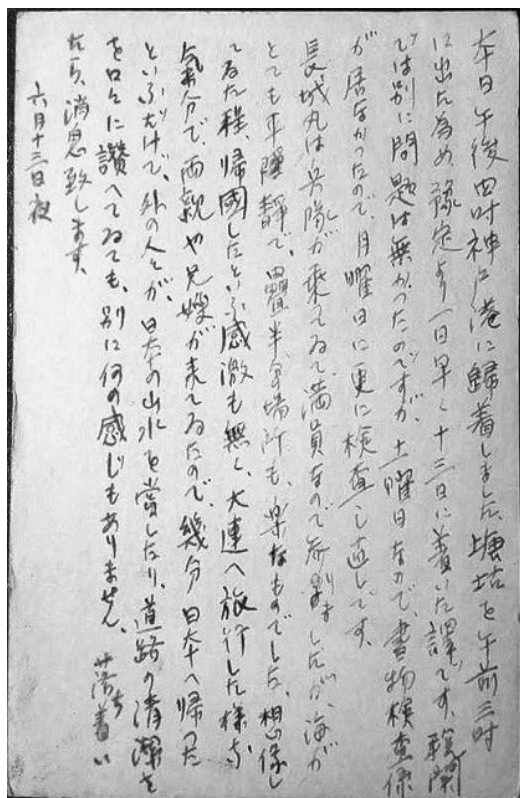 本日午後四時神戸港に歸着しました、塘沽を午前三時
に出た為め、豫定より一日早く十三日に着いた譯です、税関
では別に問題は無かつたのですが、土曜日なので、書物検査係
が居なかつたので、月曜日に更に検査し直しです、
長城丸は兵隊が乗てゐて、満員なので参りましたが、海が
とても平穏静で、畳半分の場所も、楽なものでした、想像し
てゐた程、帰國したといふ感激も無く、大連へ旅行した様な
気分で、両親や兄嫂が来てゐたので、幾分日本へ帰つた
といふだけで、外の人々が、日本の山水を賞したり、道路の清潔さ
を口々に讃へてゐても、別に何の感じもありません、落ち着い
たら、消息致します、
六月十三日夜